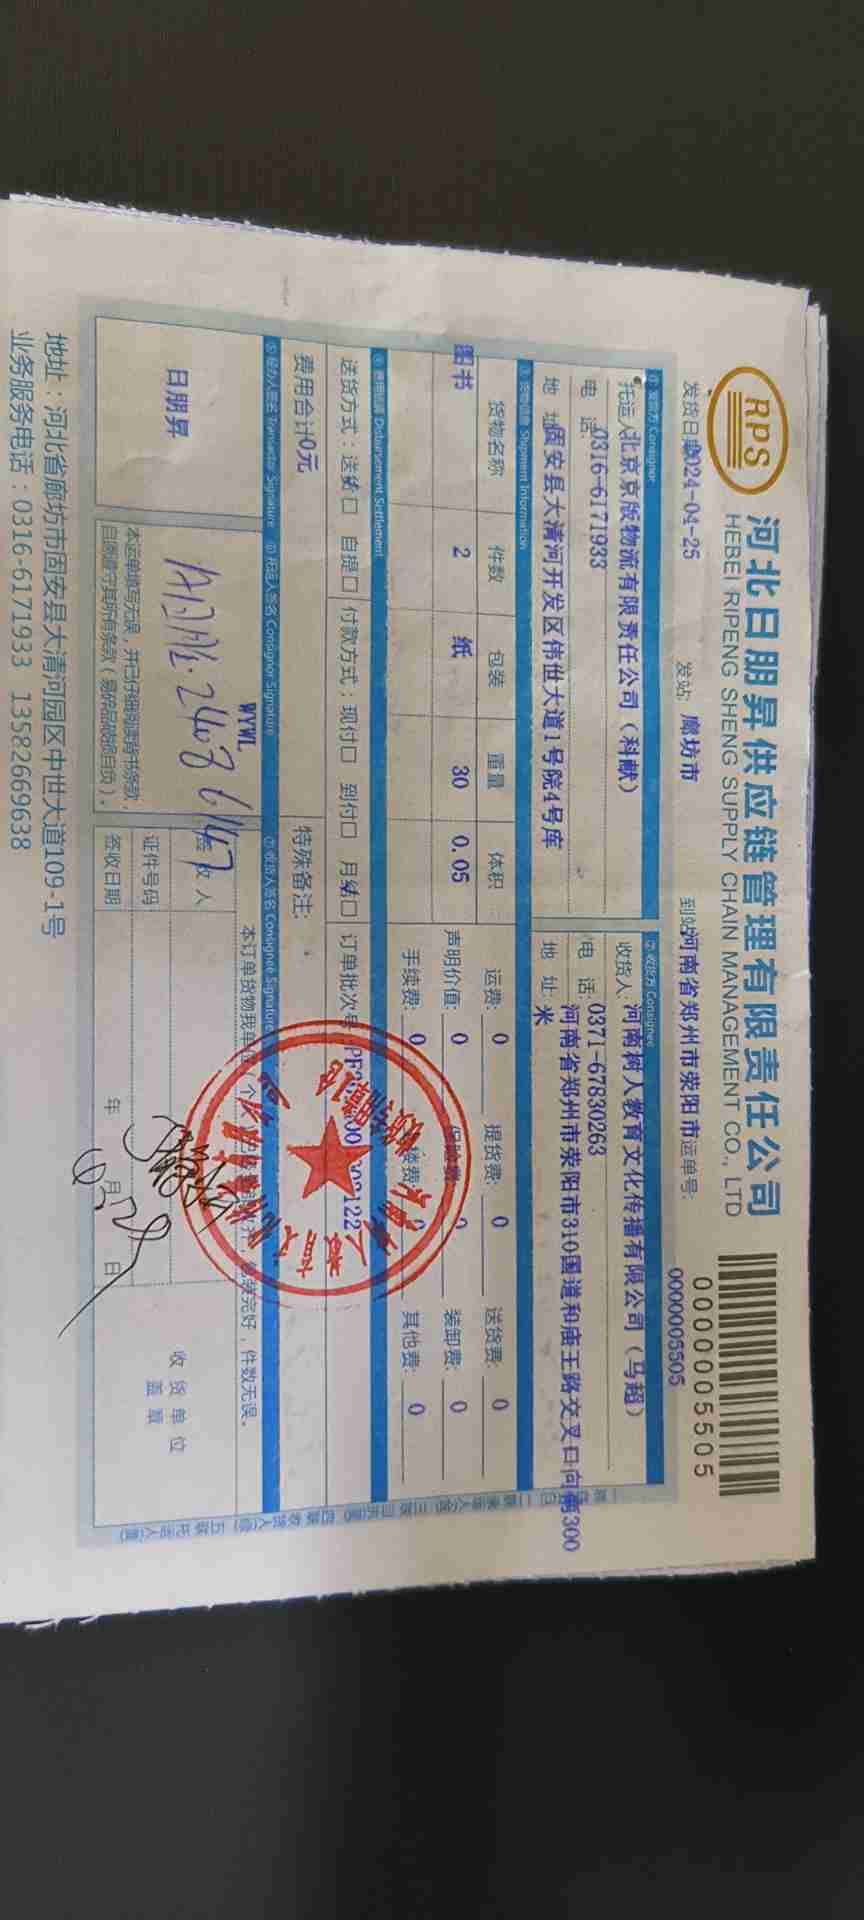 RPS
河北日朋昇供应链管理有限责任公司
HEBEI RIPENG SHENG SUPPLY CHAIN MANAGEMENT CO., LTD
0000005505
发货日期 2024-04-25 发站: 廊坊市 到站: 河南省郑州市荥阳市 运单号: 0000005505
① 发货方 Consignor ② 收货方 Consignee
托运人: 北京京版物流有限责任公司（科献） 收货人: 河南树人教育文化传播有限公司（马超）
电 话: 0316-6171933 电 话: 0371-67830263
地 址: 固安县大清河开发区伟世大道1号院4号库 地 址: 河南省郑州市荥阳市310国道和庙王路交叉口向南300
米
③ 货物信息 Shipment Information
货物名称 件数 包装 重量 体积 运费: 0 提货费: 0 送货费: 0
图书 2 纸 30 0.05 声明价值: 0 保险费: 0 装卸费: 0
手续费: 0 其他费: 0
④ 费用结算 Disbursement Settlement
送货方式：送货□ 自提□ 付款方式：现付□ 到付□ 月结□ 订单批次号
费用合计0元 特殊备注:
⑤ 经办人签名 Transactor Signature ⑥ 托运人签名 Consignor Signature ⑦ 收货人签名 Consignee Signature
日朋昇
WYWL
本运单填写无误，并已仔细阅读背书条款，
自愿遵守其所有条款（易碎品破损自负）。
包装完好，件数无误。
签收人
证件号码
签收日期 年 月 日
6.28
收货单位
盖章
地址：河北省廊坊市固安县大清河园区中世大道109-1号
业务服务电话：0316-6171933 13582669638